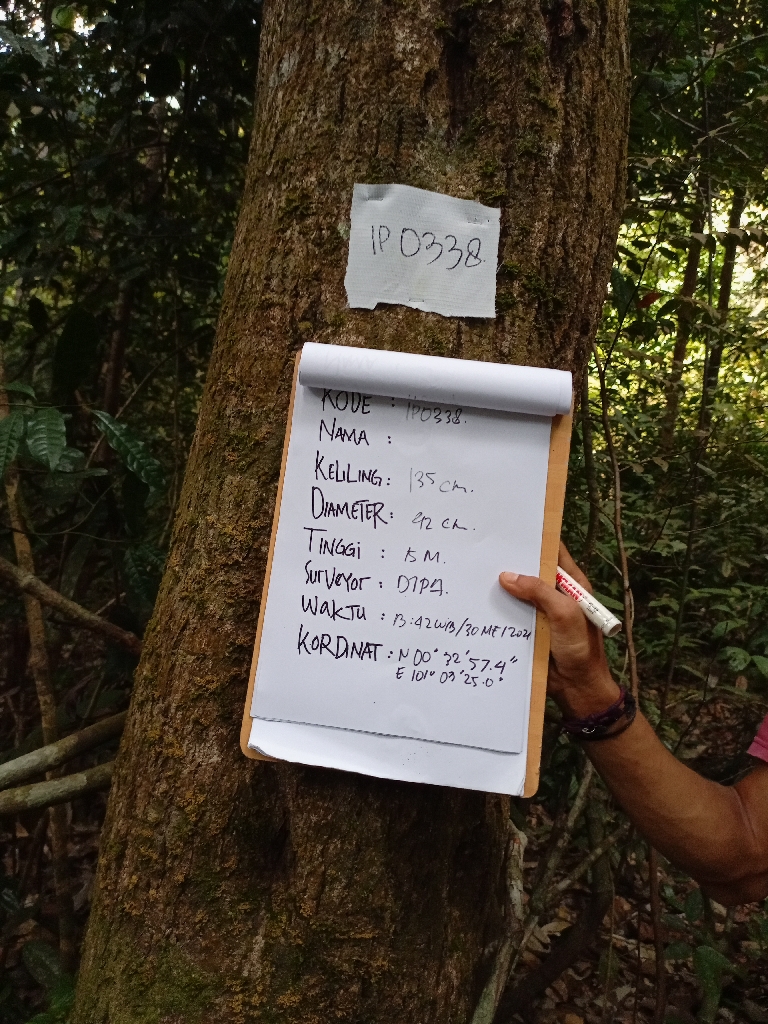 IP 0338
KODE : IP0338.
NAMA :
KELILING : 135 cm.
DIAMETER : 42 cm.
TINGGI : 15 M.
SURVEYOR :
WAKTU : 13:42 WIB/30 MEI 2021
KORDINAT : N 00° 32' 57.4"
E 101° 03' 25.0"